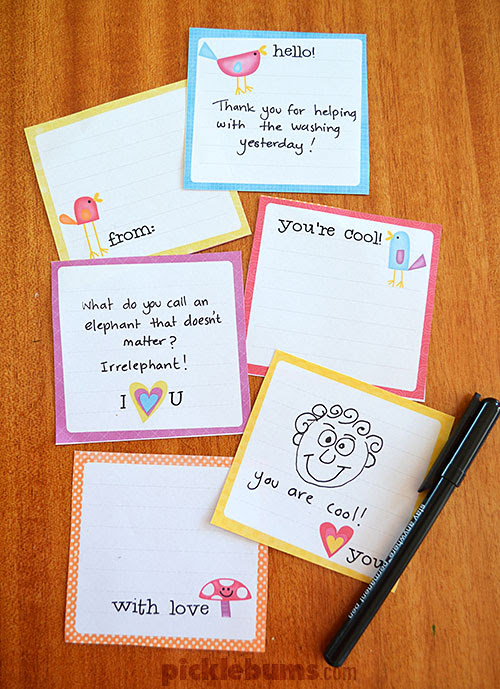 hello!
Thank you for helping
with the washing
yesterday!
from:
you're cool!
What do you call an
elephant that doesn't
matter?
Irrelephant!
I U
you are cool!
you
with love
stay anywhere permanent pen
picklebums.com